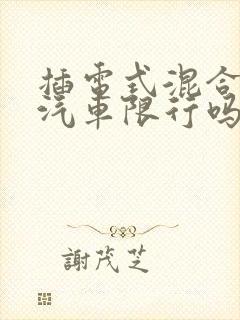 插電式混合
汽車限行吗
謝茂芝